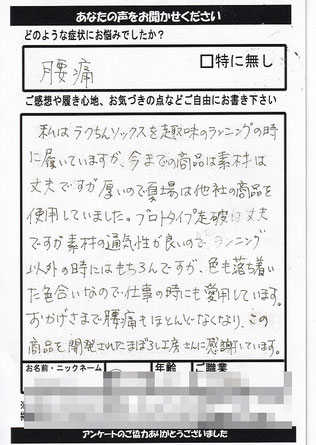 あなたの声をお聞かせください
どのような症状にお悩みでしたか？
腰痛
□特に無し
ご感想や履き心地、お気づきの点などご自由にお書き下さい
私はラクちんソックスを趣味のランニングの時
に履いていますが、今までの商品は素材は
丈夫ですが厚いので夏場は他社の商品を
使用していました。プロトタイプ走破は丈夫
ですが素材の通気性が良いのでランニング
以外の時にはもちろんですが、色も落ち着い
た色合いなので仕事の時にも愛用しています。
おかげさまで腰痛もほとんどなくなり、この
商品を開発されたまぼろし工房さんに感謝しています。
お名前・ニックネーム
年齢
ご職業
アンケートのご協力ありがとうございました